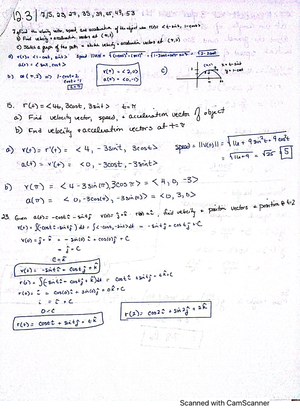 12.3 | 7, 15, 23, 27, 33, 39, 45, 49, 53
7. a) Find the velocity vector, speed, and acceleration of the object use r(t) = <t - sint, 1-cost>
b) Find velocity + acceleration vectors at (π, 2)
c) Sketch a graph of the path + sketch velocity + acceleration vectors at (π, 2)
a) v(t) = <1 - cost, sint>
a(t) = <sint, cost>
b) @ (π, 2)
1-cost = 2
cost = -1
t = π
v(π) = <2, 0>
a(π) = <0, -1>
c)
15. r(t) = <4t, 3cost, 3sint> t = π
a) Find velocity vector, speed, + acceleration vector of object
b) Find velocity + acceleration vectors at t = π
a) v(t) = r'(t) = <4, -3sint, 3cost> speed = ||v(t)|| = √16 + 9sin²t + 9cos²t
a(t) = r''(t) = <0, -3cost, -3sint> = √16+9 = √25 = 5
b) v(π) = <4 - 3sin(π), 3cosπ> = <4, 0, -3>
a(π) = <0, -3cos(π), -3sin(π)> = <0, 3, 0>
23. Given a(t) = -costi - sintj v(0) = j + k r(0) = i, find velocity + position vectors + position @ t=2
v(t) = ∫(-costi - sintj)dt = -sinti + costj + C
v(0) = j + k = -sin(0)i + cos(0)j + C
= j + C
C = k
v(t) = -sinti + costj + k
r(t) = ∫(-sinti + costj + k)dt = costi + sintj + tk + C
r(0) = i = cos(0)i + sin(0)j + 0k + C
i = i + C
0 = C
r(t) = costi + sintj + tk
r(2) = cos2i + sin2j + 2k
Scanned with CamScanner